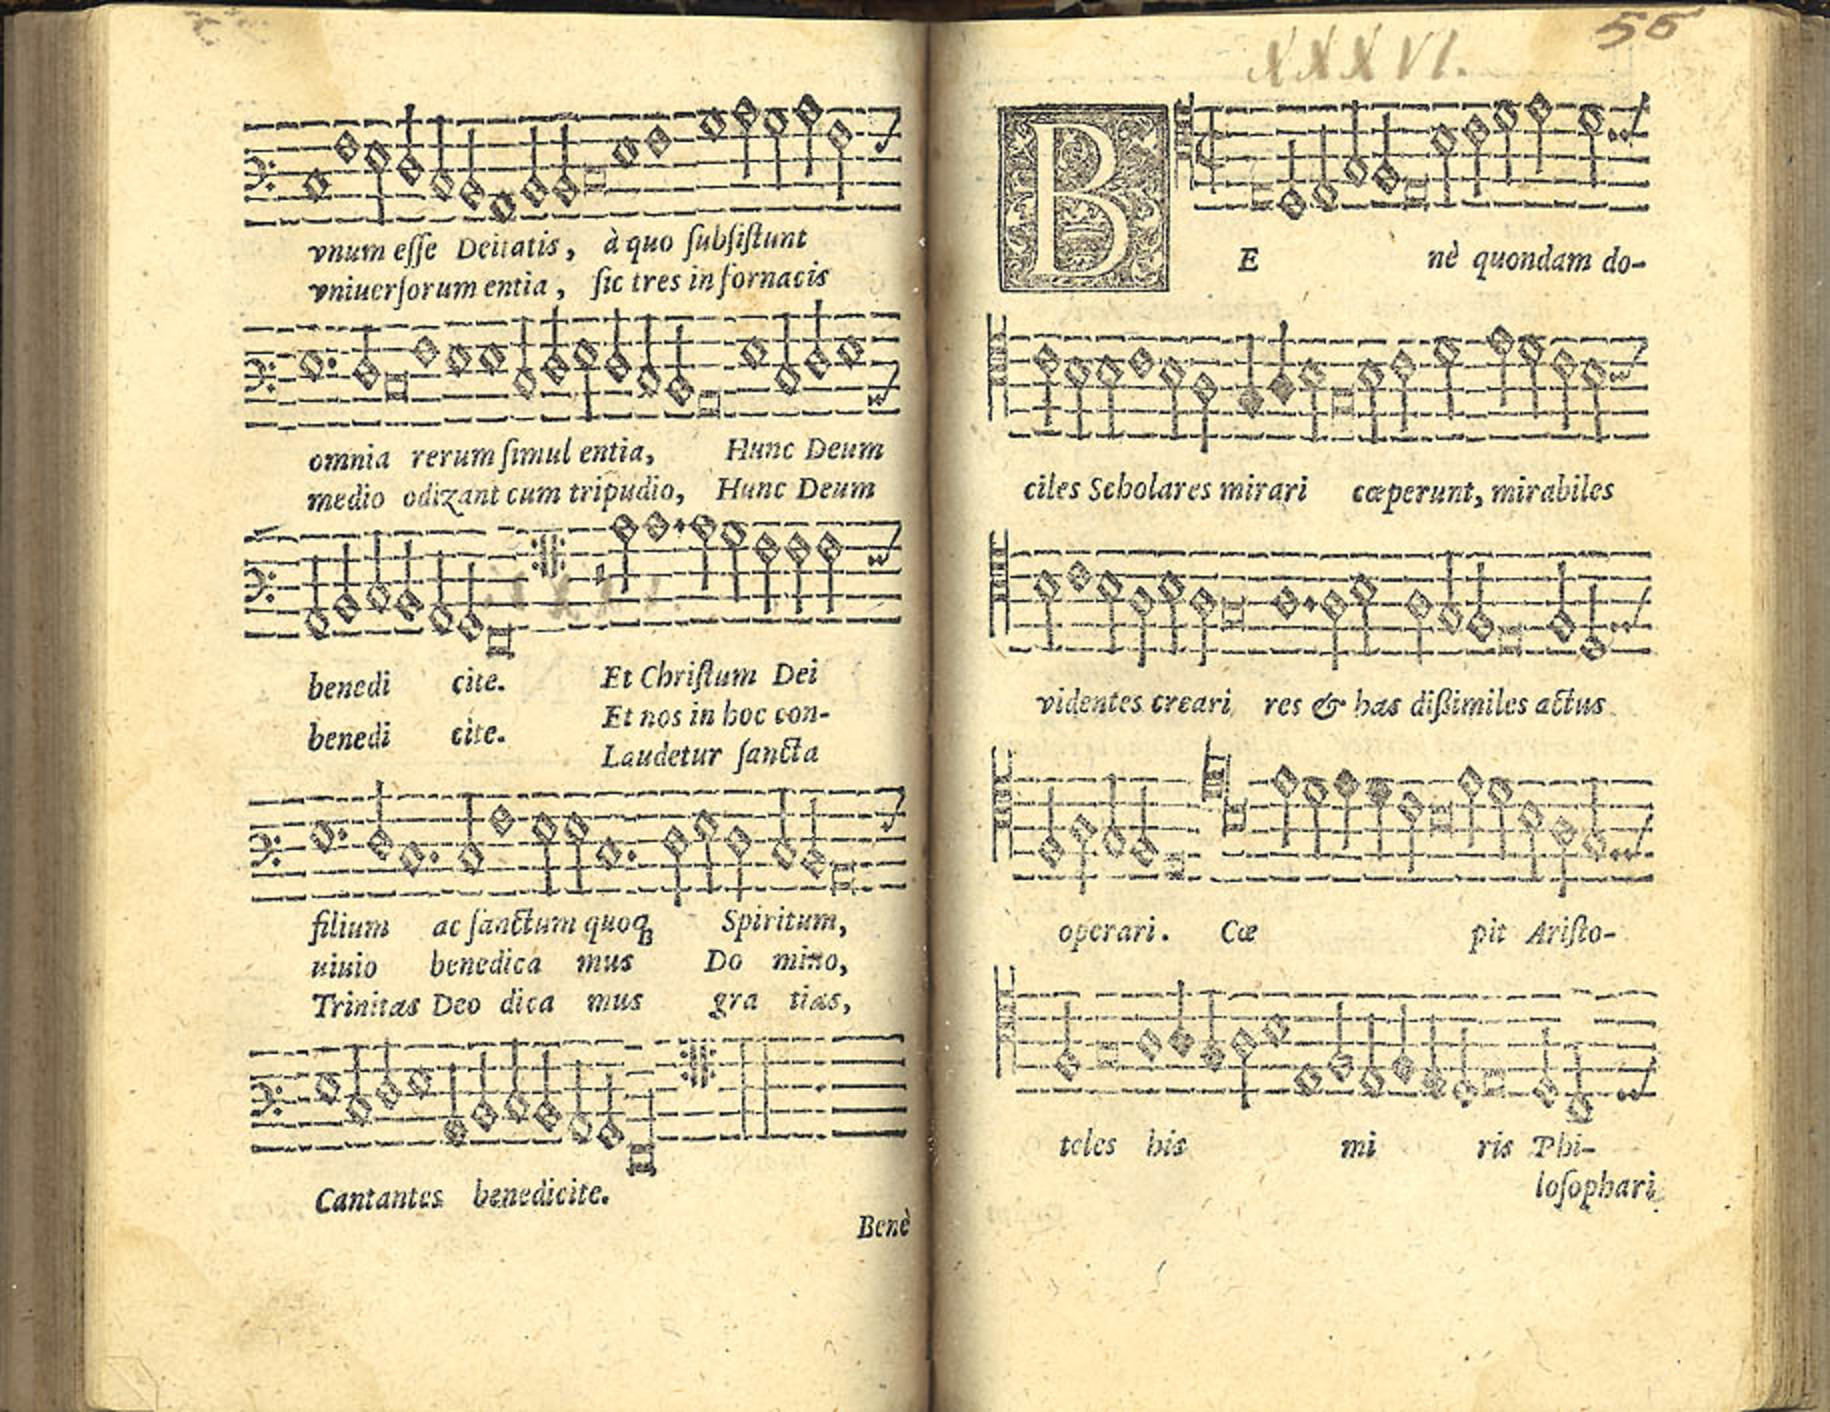 vnum eſſe Deitatis, à quo ſubſiſtunt
vniuerſorum entia, ſic tres in fornacis
omnia rerum ſimul entia, Hunc Deum
medio odizant cum tripudio, Hunc Deum
benedi cite. Et Chriſtum Dei
Et nos in hoc con-
benedi cite.
Laudetur ſancta
filium ac ſanctum quoqȝ Spiritum,
uiuio benedica mus Do mino,
Trinitas Deo dica mus gra tias,
Cantantes benedicite.
Benè
55
XXXVI.
BE nè quondam do-
ciles Scholares mirari cœperunt, mirabiles
videntes creari res & has dißimiles actus
operari. Cœ pit Ariſto-
teles his mi ris Phi-
loſophari